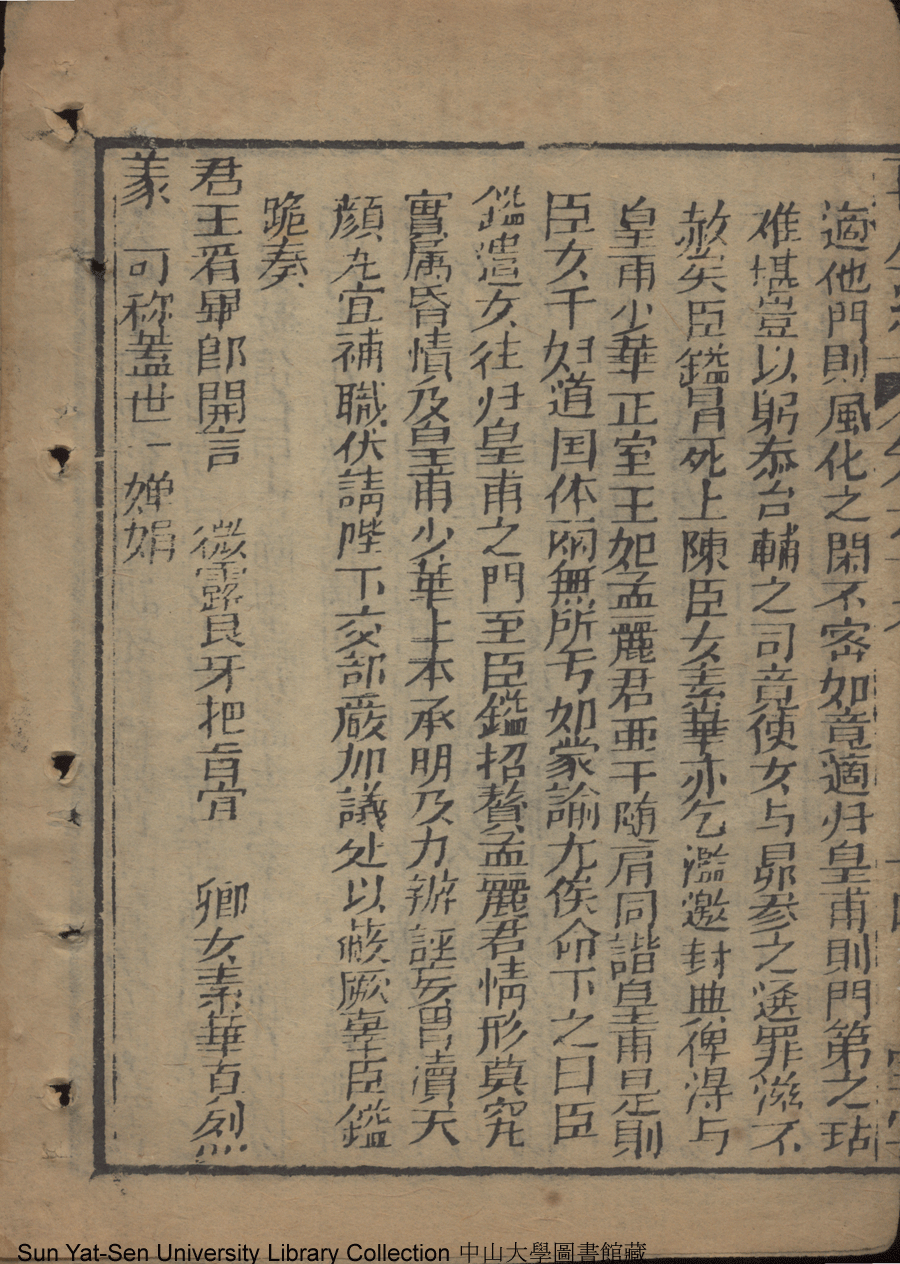 適他門則風化之閑不密如竟適归皇甫則門第之玷
难堪豈以躬忝台輔之司竟使女与昴參之選罪滋不
赦矣臣鑑冒死上陳臣女素華亦乞濫邀封典俾淂与
皇甫少華正室王妃孟麗君亜于随肩同諧皇甫是則
臣女干妇道国体兩無所亏如蒙諭允俟命下之日臣
鑑遣女往归皇甫之門至臣鑑招贅孟麗君情形莫究
實属昏愦及皇甫少華上本承明乃力辦誣妄冒瀆天
顔尢宜補職伏請陛下交部嚴加議处以蔽厥辜臣鑑
跪奏
君王看畢郎開言 微露艮牙把旨宣 卿女素華貞烈
羕 可称蓋世一婵娟。
Sun Yat-Sen University Library Collection 中山大學圖書館藏